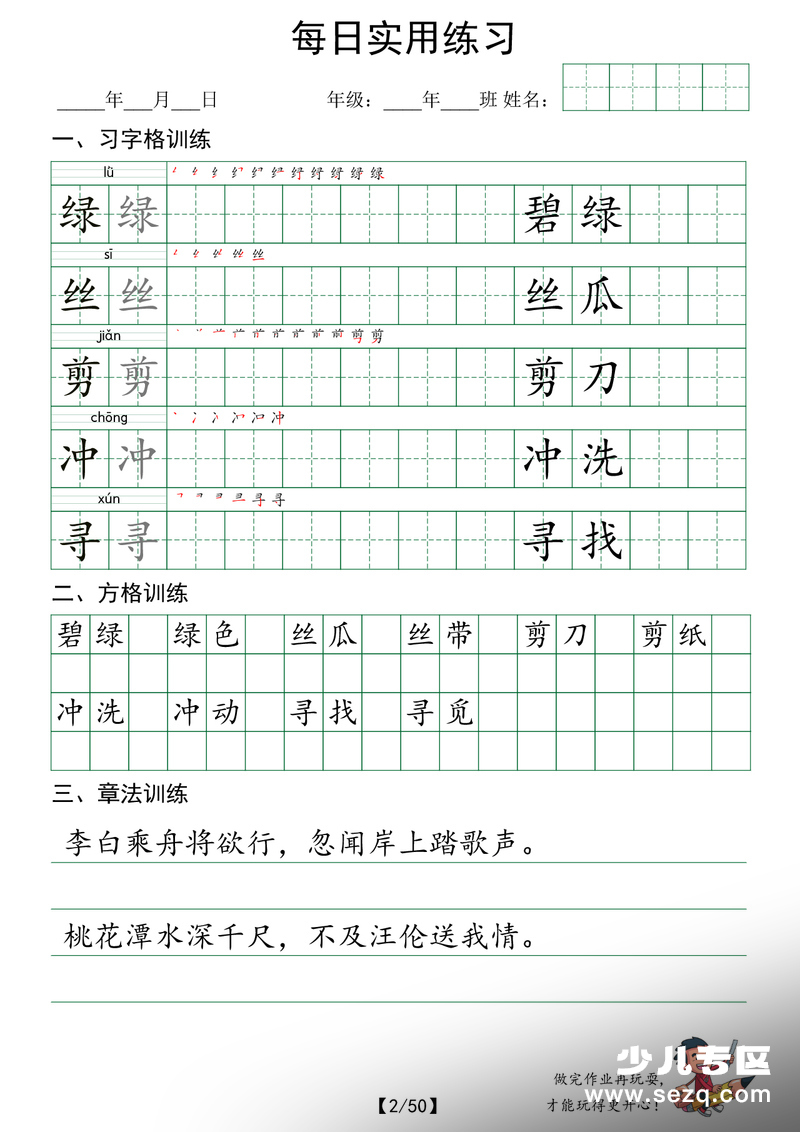 每日实用练习
_____年___月___日 年级：____年____班 姓名：
一、习字格训练
lǜ
绿 绿 碧 绿
sī
丝 丝 丝 瓜
jiǎn
剪 剪 剪 刀
chōng
冲 冲 冲 洗
xún
寻 寻 寻 找
二、方格训练
碧绿 绿色 丝瓜 丝带 剪刀 剪纸
冲洗 冲动 寻找 寻觅
三、章法训练
李白乘舟将欲行，忽闻岸上踏歌声。
桃花潭水深千尺，不及汪伦送我情。
做完作业再玩耍，
才能玩得更开心！
【2/50】
少儿专区
www.sezq.com